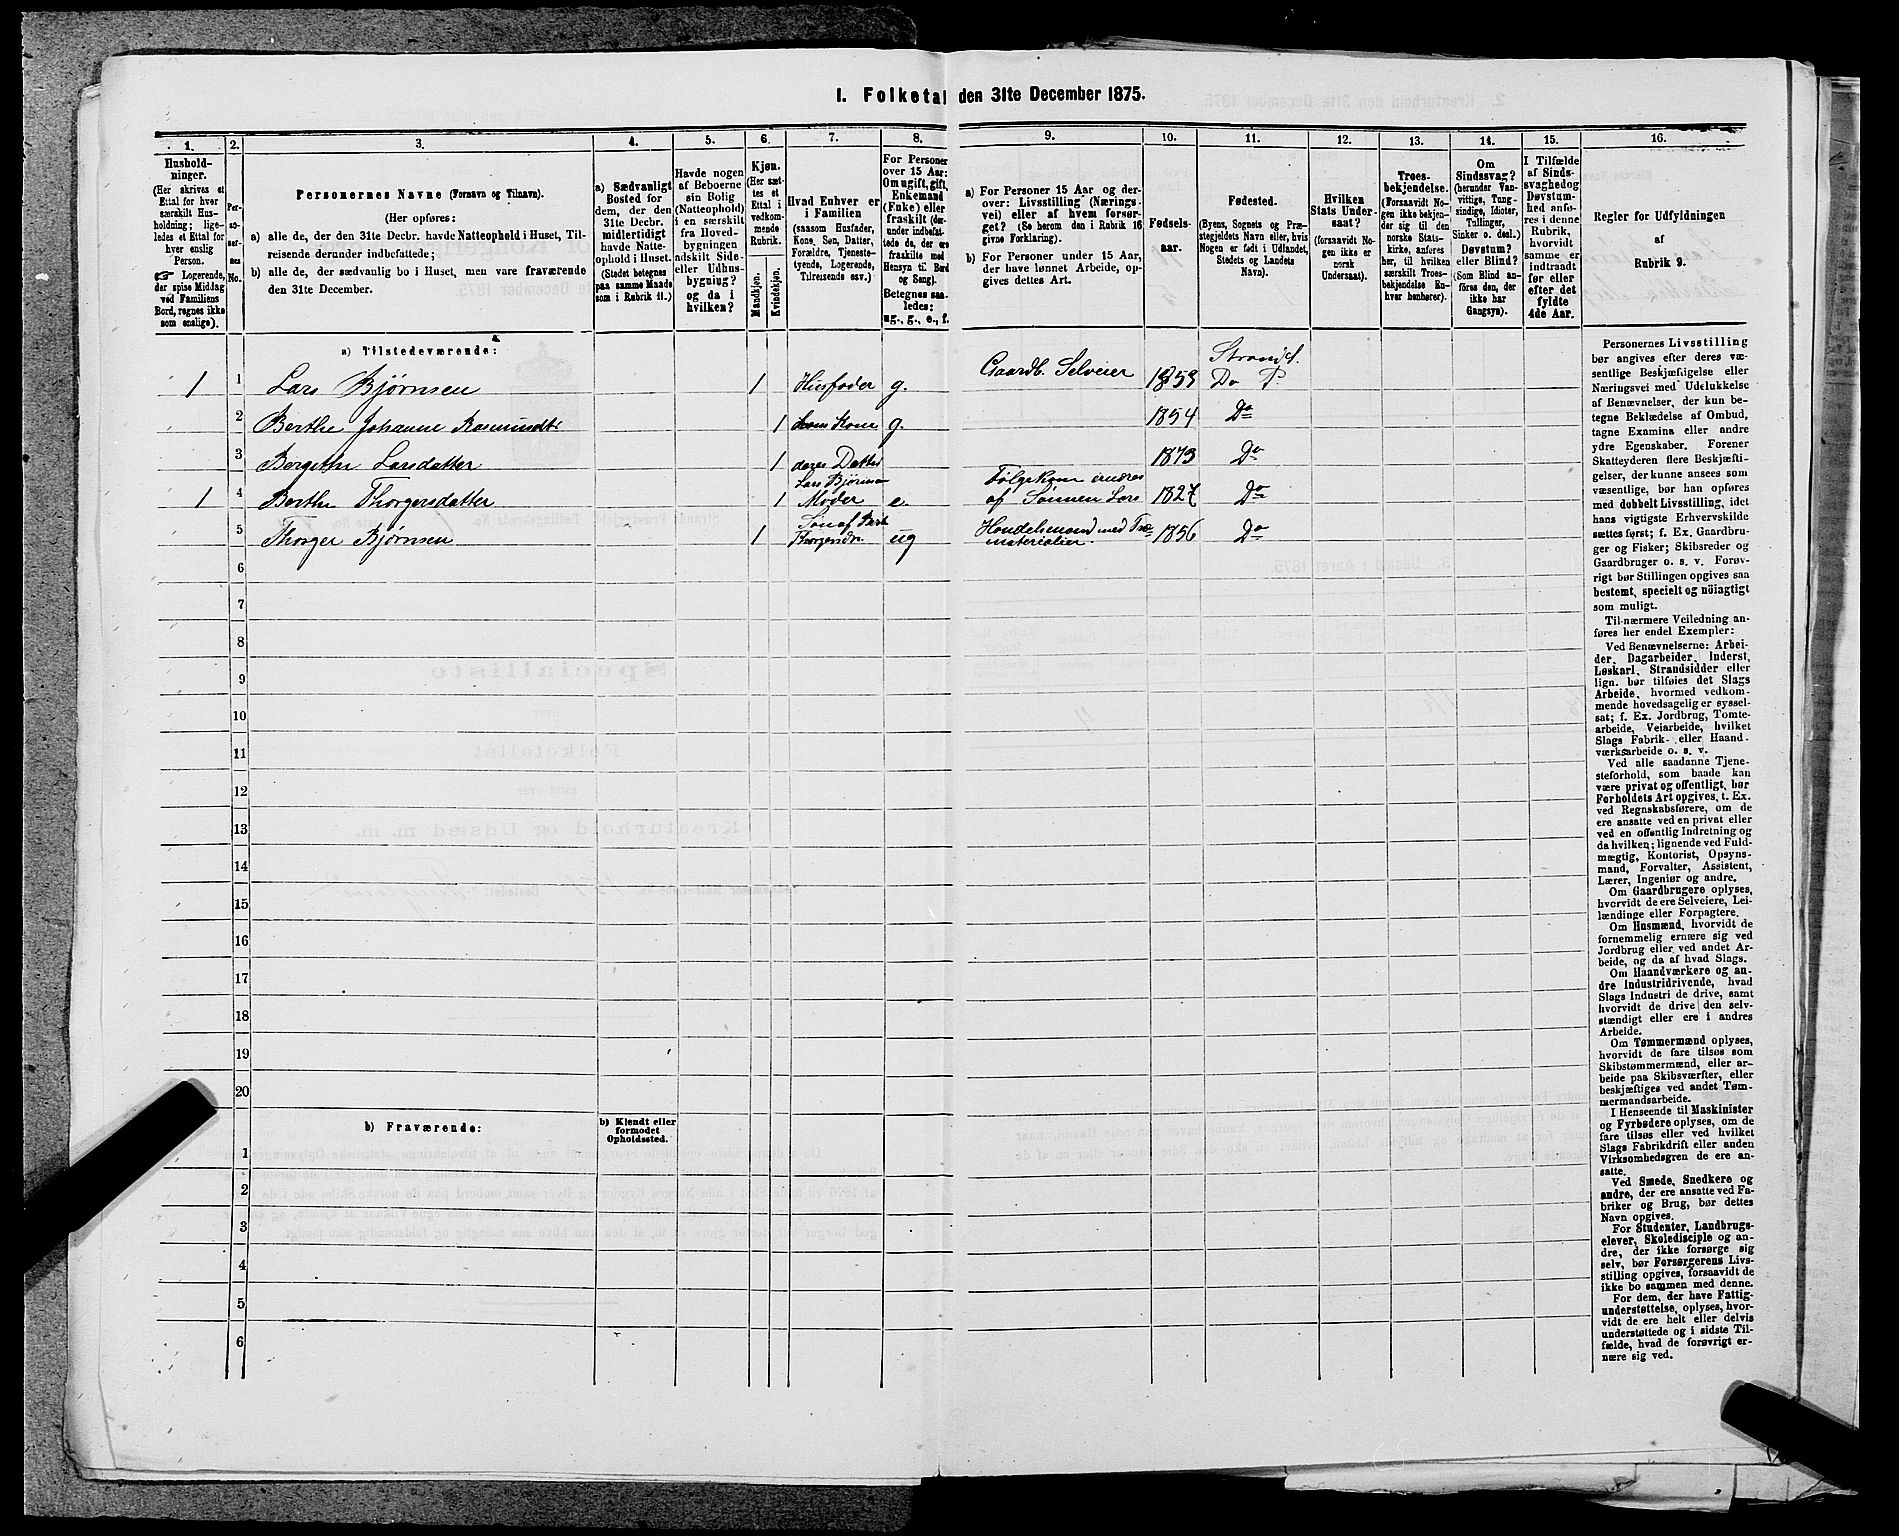 I. Folketal den 31te December 1875.
1.
Hushold-
ninger.
(Her skrives et
Ettal for hver
særskilt Hus-
holdning; lige-
ledes et Ettal for
hver enslig
Person.
☛ Logerende,
der spise Middag
ved Familiens
Bord, regnes ikke
som enslige).
2.
Per-
so-
ner-
nes
No.
3.
Personernes Navne (Fornavn og Tilnavn).
(Her opføres:
a) alle de, der den 31te Decbr. havde Natteophold i Huset, Til-
reisende derunder indbefattede;
b) alle de, der sædvanlig bo i Huset, men vare fraværende
den 31te December.)
4.
a) Sædvanligt
Bosted for
dem, der den
31te Decbr.
midlertidigt
havde Natte-
ophold i Huset.
(Stedet betegnes
paa samme Maade
som i Rubrik 11.)
5.
Havde nogen
af Beboerne
sin Bolig
(Natteophold)
i en særskilt
fra Hoved-
bygningen
adskilt Side-
eller Udhus-
bygning?
og da i
hvilken?
6.
Kjøn.
(Her sæt-
tes et
Ettal i
vedkom-
mende
Rubrik.
Mandkjøn.
Kvindekjøn.
7.
Hvad Enhver er
i Familien
(saasom Husfader,
Kone, Søn, Datter,
Forældre, Tjeneste-
tyende, Logerende,
Tilreisende osv.)
8.
For Personer
over 15 Aar:
Om ugift, gift,
Enkemand
(Enke) eller
fraskilt (der-
under indbefat-
tede de, der ere
fraskilte med
Hensyn til Bord
og Seng).
Betegnes saa-
ledes:
ug., g., e., f.
9.
a) For Personer 15 Aar og der-
over: Livsstilling (Nærings-
vei) eller af hvem forsør-
get? (Se herom den i Rubrik 16
givne Forklaring).
b) For Personer under 15 Aar,
der have lønnet Arbeide, op-
gives dettes Art.
10.
Fødsels-
aar.
11.
Fødested.
(Byens, Sognets og Præ-
stegjeldets Navn eller, hvis
Nogen er født i Udlandet,
Stedets og Landets
Navn).
12.
Hvilken
Stats Under-
saat?
(forsaavidt No-
gen ikke er
norsk
Undersaat).
13.
Troes-
bekjendelse.
(Forsaavidt No-
gen ikke bekjen-
der sig til den
norske Stats-
kirke, anføres
her, til hvilken
særskilt Troes-
bekjendelse En-
hver henhører).
14.
Om
Sindssvag?
(herunder Van-
vittige, Tung-
sindige, Idioter,
Tullinger,
Sinker o. desl.)
Døvstum?
eller Blind?
(Som Blind an-
føres den, der
ikke har
Gangsyn).
15.
I Tilfælde
af Sinds-
svaghed og
Døvstum-
hed anfø-
res i denne
Rubrik,
hvorvidt
samme er
indtraadt
før eller
efter det
fyldte
4de Aar.
16.
Regler for Udfyldningen
af
Rubrik 9.
a) Tilstedeværende:
1 1 Lars Bjørnsen 1 Husfader g. Gaardb. Selveier 1853 Strand S. Do P
2 Berthe Johanne Rasmundt 1 hans Kone g. 1854 Do
3 Bergethe Larsdatter 1 deres Datter 1873 Do
1 4 Berthe Thorgersdatter 1 Lars Bjørnsen Moder e. Følgekone ernæres af Sønnen Lars 1827 Do
5 Thorger Bjørnsen 1 Søn af Bert Thorgersdr. ug Handelsmand med Træ materialier 1856 Do
6
7
8
9
10
11
12
13
14
15
16
17
18
19
20
b) Fraværende:
b) Kjendt eller
formodet
Opholdssted.
1
2
3
4
5
6
Personernes Livsstilling
bør angives efter deres væ-
sentlige Beskjæftigelse eller
Næringsvei med Udelukkelse
af Benævnelser, der kun be-
tegne Beklædelse af Ombud,
tagne Examina eller andre
ydre Egenskaber. Forener
Skatteyderen flere Beskjæfti-
gelser, der kunne ansees som
væsentlige, bør han opføres
med dobbelt Livsstilling, idet
hans vigtigste Erhvervskilde
sættes først; f. Ex. Gaardbru-
ger og Fisker; Skibsreder og
Gaardbruger o. s. v. Forøv-
rigt bør Stillingen opgives saa
bestemt, specielt og nøiagtigt
som muligt.
Til nærmere Veiledning an-
føres her endel Exempler:
Ved Benævnelserne: Arbei-
der, Dagarbeider, Inderst,
Løskarl, Strandsidder eller
lign. bør tilføies det Slags
Arbeide, hvormed vedkom-
mende hovedsagelig er syssel-
sat; f. Ex. Jordbrug, Tomte-
arbeide, Veiarbeide, hvilket
Slags Fabrik- eller Haand-
værksarbeide o. s. v.
Ved alle saadanne Tjene-
steforhold, som baade kan
være privat og offentligt, bør
Forholdets Art opgives, t. Ex.
ved Regnskabsførere, om de
ere ansatte ved en privat eller
ved en offentlig Indretning og
da hvilken; lignende ved Fuld-
mægtig, Kontorist, Opsyns-
mand, Forvalter, Assistent,
Lærer, Ingeniør og andre.
Om Gaardbrugere oplyses,
hvorvidt de ere Selveiere, Lei-
lændinge eller Forpagtere.
Om Husmænd, hvorvidt de
fornemmelig ernære sig ved
Jordbrug eller ved andet Ar-
beide, og da af hvad Slags.
Om Haandværkere og an-
dre Industridrivende, hvad
Slags Industri de drive, samt
hvorvidt de drive den selv-
stændigt eller ere i andres
Arbeide.
Om Tømmermænd oplyses,
hvorvidt de fare tilsøs som
Skibstømmermænd, eller ar-
beide paa Skibsværfter, eller
beskjæftiges ved andet Tøm-
mermandsarbeide.
I Henseende til Maskinister
og Fyrbødere oplyses, om de
fare tilsøs eller ved hvilket
Slags Fabrikdrift eller anden
Virksomhedsgren de ere an-
satte.
Ved Smede, Snedkere og
andre, der ere ansatte ved Fa-
briker og Brug, bør dettes
Navn opgives.
For Studenter, Landbrugs-
elever, Skoledisciple og an-
dre, der ikke forsørge sig
selv, bør Forsørgerens Livs-
stilling opgives, forsaavidt de
ikke bo sammen med denne.
For dem, der have Fattig-
understøttelse, oplyses, hvor-
vidt de ere helt eller delvis
understøttede og i sidste Til-
fælde, hvad de forøvrigt er-
nære sig ved.